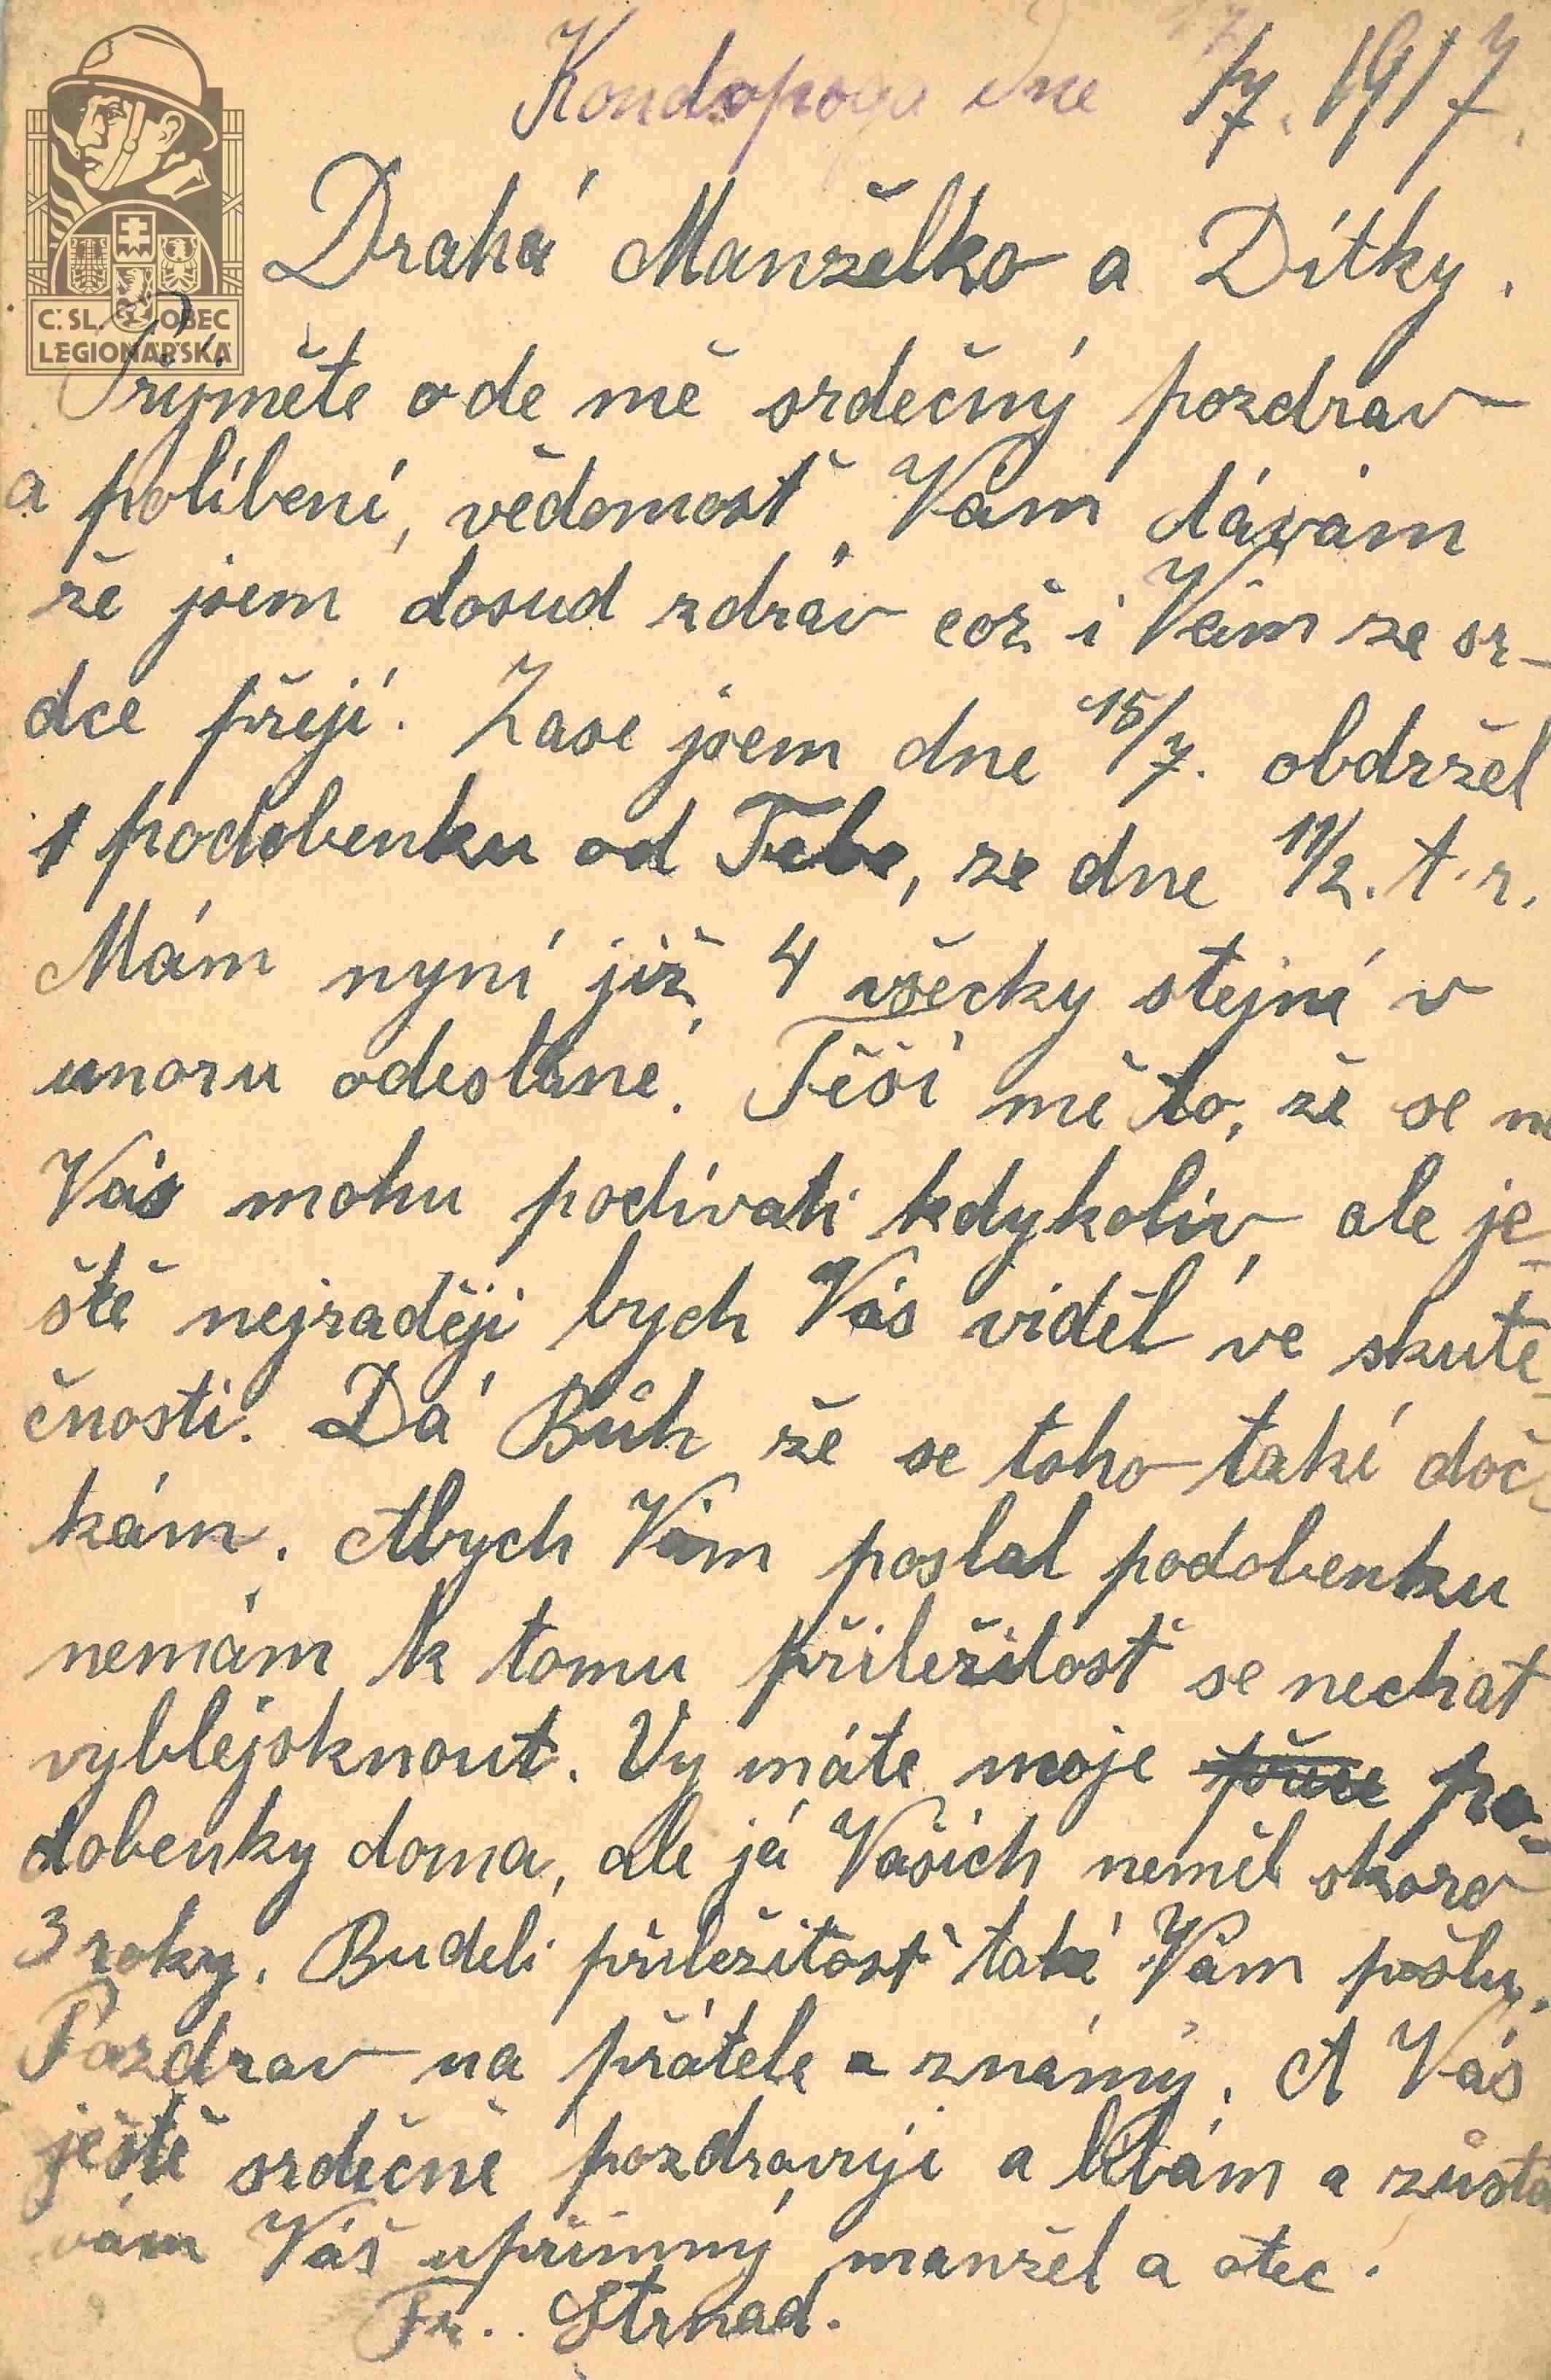 Kondopoga dne 17/7. 1917.
Drahá Manželko a Dítky.
Č. SL. OBEC
LEGIONÁŘSKÁ
Příjměte ode mě srdečný pozdrav
a políbení, vědomosť Vám dávám
že jsem dosud zdráv což i Vám ze sr-
dce přeji. Zase jsem dne 15/7. obdržel
1 podobenku od Tebe, ze dne 11/2. t. r.
Mám nyní již 4 všecky stejné v
unoru odeslané. Těší mě to, že se na
Vás mohu podívati kdykoliv, ale je-
ště nejraději bych Vás viděl ve skute-
čnosti. Dá Bůh že se toho také doč-
kám. Abych Vám poslal podobenku
nemám k tomu příležitosť se nechat
vyblejsknout. Vy máte moje po-
dobenky doma, ale já Vašich neměl skoro
3 roky. Budeli příležitosť také Vám pošlu.
Pozdrav na přátele a známý. A Vás
ještě srdečně pozdravuji a líbám a zůsta
vám Váš upřímný manžel a otec.
Fr. Strnad.